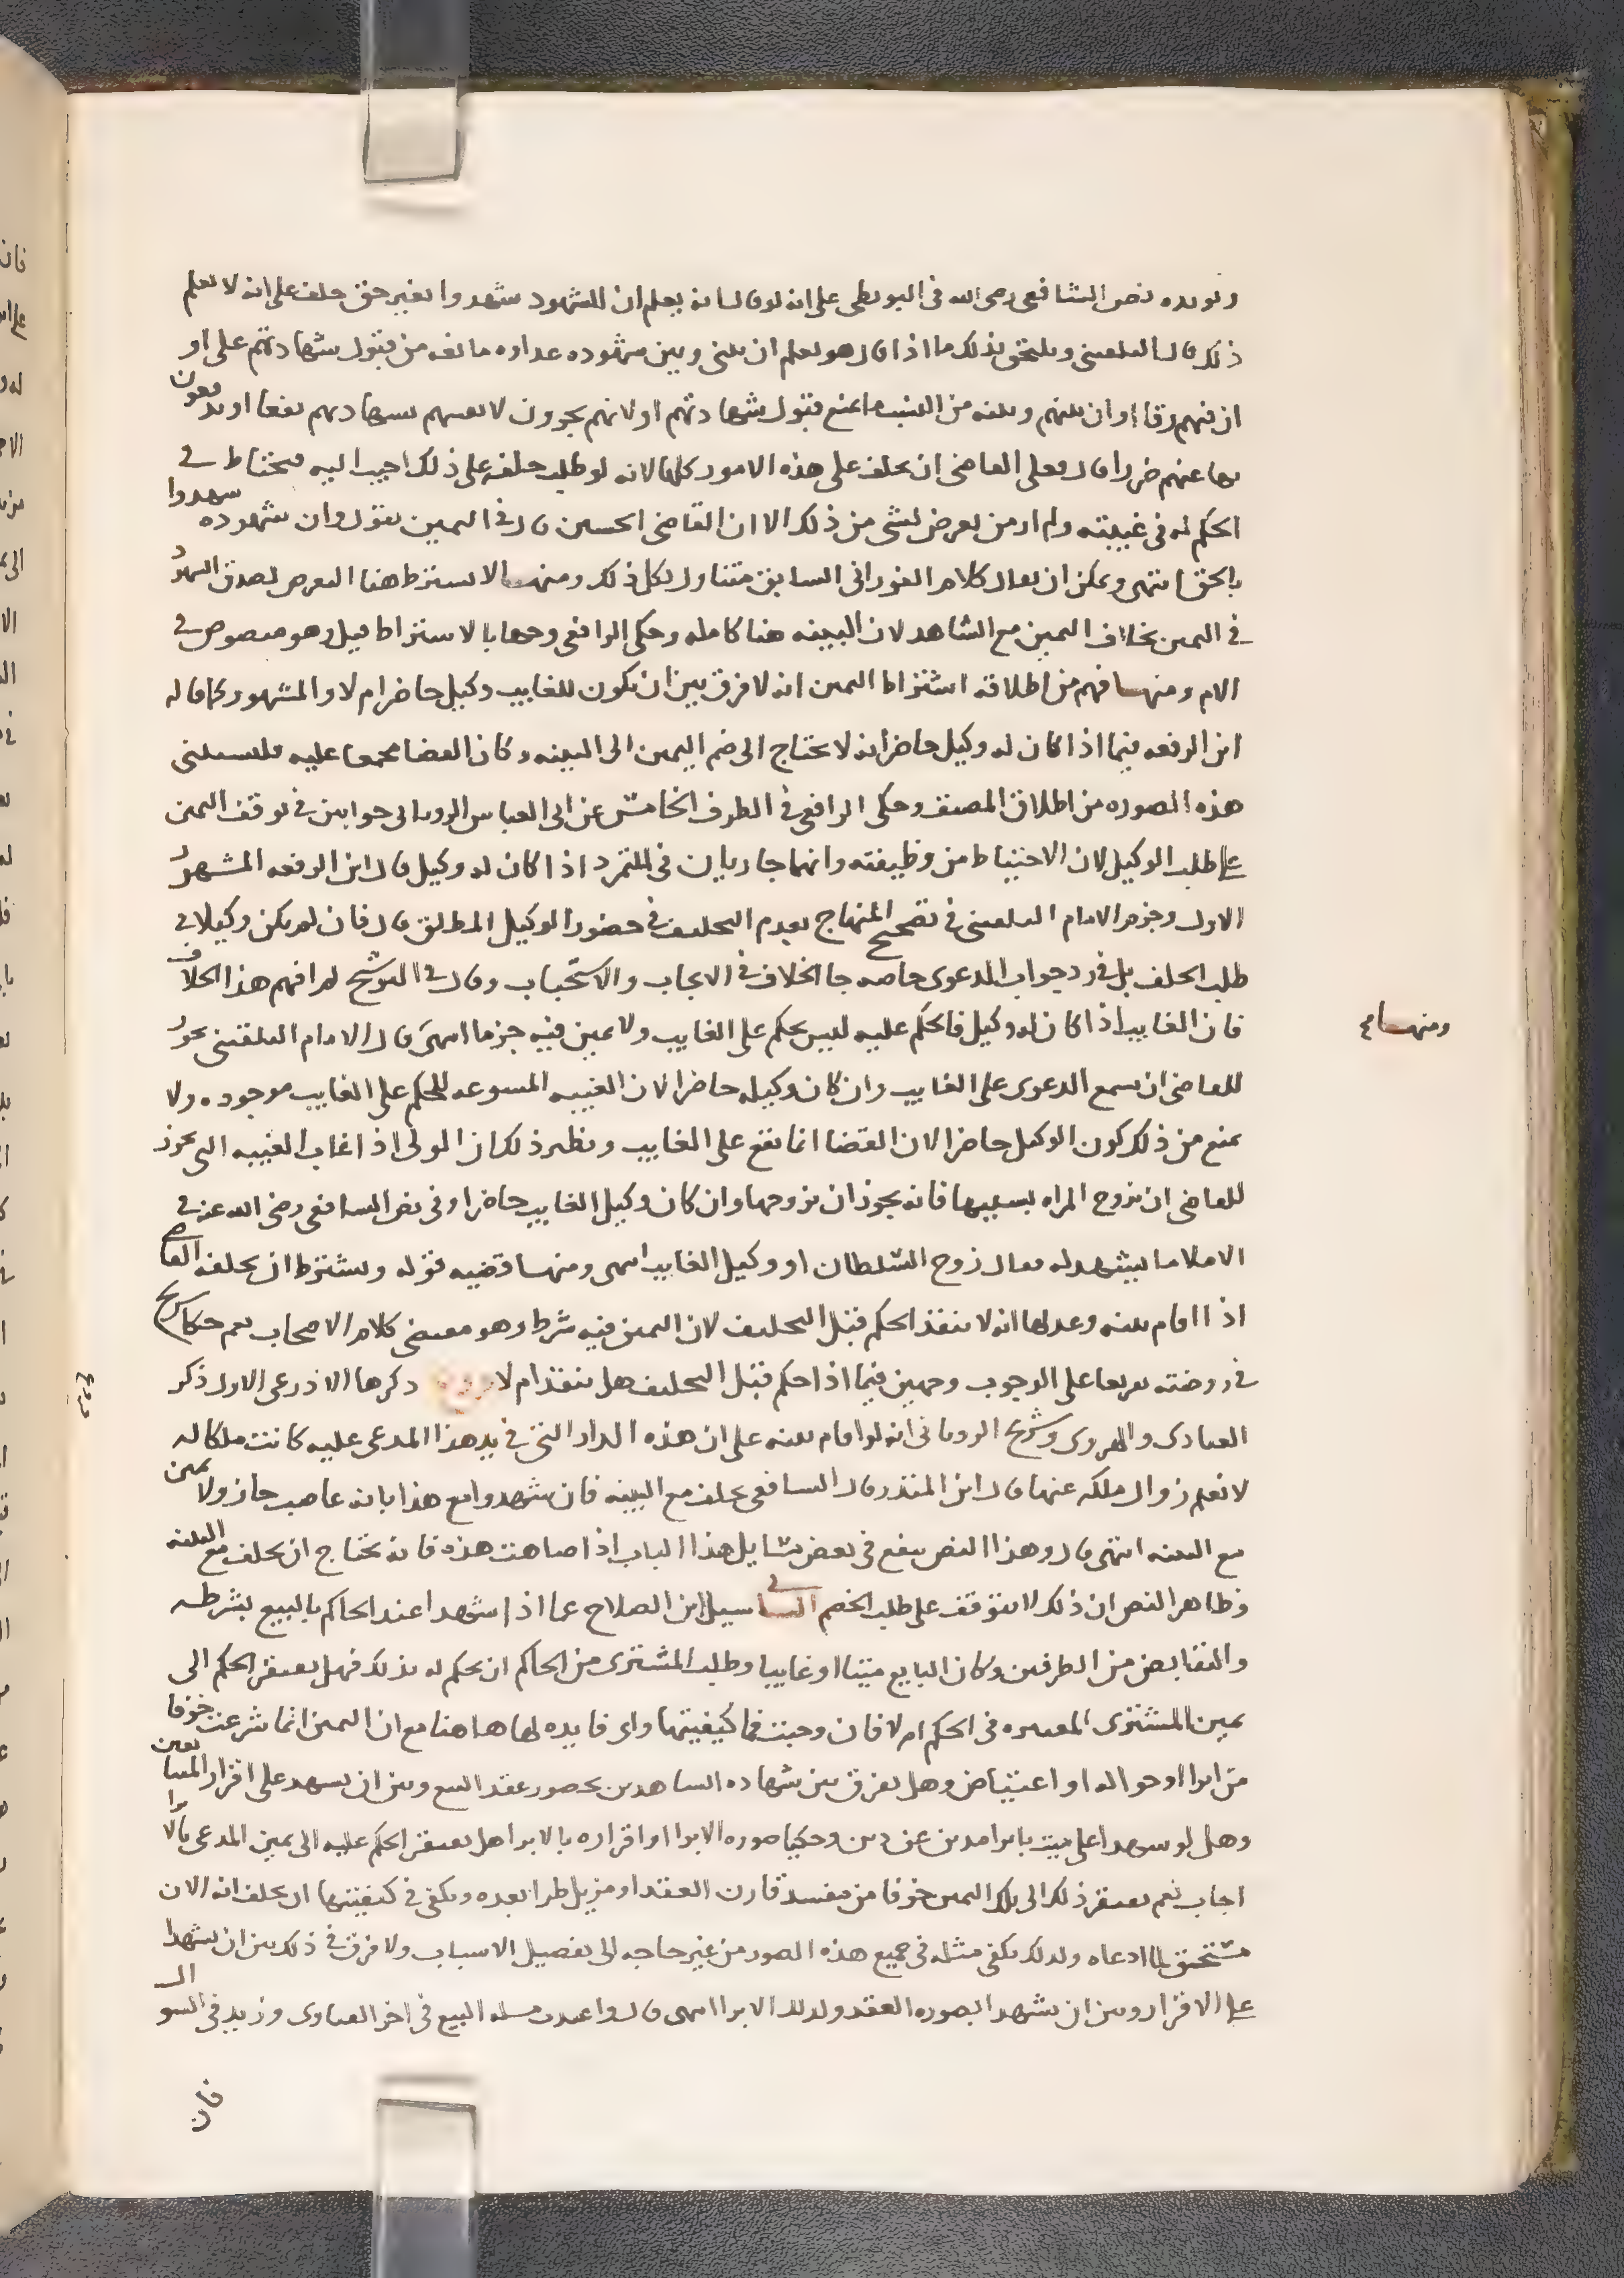 ويويده نص الشافعي رضي الله في البويطي على انه لو قال انه يعلم ان الشهود شهدوا بغير حق حلف على انه لا يعلم
ذلك قال البلقيني ويلتحق بذلك ما اذا قال هو يعلم ان بيني وبين شهوده عداوه مانعه من قبول شهادتهم على او
ان فيهم رقا او ان بينهم وبينه من النسب ما يمنع قبول شهادتهم او لانهم يجرون لانفسهم بشهادتهم نفعا او يدفعون
بها عنهم ضررا قال فعلى القاضي ان يحلف على هذه الامور كلها لانه لو طلب حلفه على ذلك اجيب اليه فيحتاط في
الحكم له في غيبته ولم ار من تعرض لشي من ذلك الا ان القاضي الحسين قال في اليمين يقول وان شهوده شهدوا
بالحق انتهى ويمكن ان يقال كلام الفوراني السابق متناول لكل ذلك ومنها لا يشترط هنا التعرض لصدق الشهود
في اليمين بخلاف اليمين مع الشاهد لان البينه هنا كامله وحكى الرافعي وجها بالاشتراط قيل وهو منصوص في
الام ومنها فهم من اطلاقه اشتراط اليمين انه لا فرق بين ان يكون للغايب وكيل حاضر ام لا والمشهور كما قاله
ابن الرفعه فيما اذا كان له وكيل حاضر انه لا يحتاج الى ضم اليمين الى البينه وكان القضا مجمعا عليه فليستثنى
هذه الصوره من اطلاق المصنف وحكى الرافعي في الطرف الخامس عن ابي العباس الروياني جوابين في توقف اليمين
على طلب الوكيل لان الاحتياط من وظيفته وانهما جاريان في المتمرد اذا كان له وكيل قال ابن الرفعه المشهور
الاول وجزم الامام البلقيني في تصحيح المنهاج بعدم التحليف في حضور الوكيل المطلق قال فان لم يكن وكيلا في
طلب الحلف بل في رد جواب الدعوى خاصه جا الخلاف في الايجاب والاستحباب وقال في التوشيح لم افهم هذا الخلاف
فان الغايب اذا كان له وكيل فالحكم عليه ليس بحكم على الغايب ولا يمين فيه جزما انتهى قال الامام البلقيني يجوز
ومنها
للقاضي ان يسمع الدعوى على الغايب وان كان وكيله حاضرا لان الغيبه المسوغه للحكم على الغايب موجوده ولا
يمنع من ذلك كون الوكيل حاضرا لان القضا انما يقع على الغايب ونظير ذلك ان الولي اذا غاب الغيبه التي يجوز
للقاضي ان يزوج المراه بسببها فانه يجوز ان يزوجها وان كان وكيل الغايب حاضرا وفي نص الشافعي رضي الله عنه في
الاملا ما يشهد له فقال زوج السلطان او وكيل الغايب انتهى ومنها قضيه قوله ويشترط ان يحلفه القاضي
اذا اقام بينه وعدلها انه لا ينفذ الحكم قبل التحليف لان اليمين فيه شرط وهو مقتضى كلام الاصحاب نعم حكا شريح
في روضته تفريعا على الوجوب وجهين فيما اذا حكم قبل التحليف هل ينفذ ام لا ذكرها الاذرعي الاول ذكر
فروع
العبادي والهروي وشريح الروياني انه لو اقام بينه على ان هذه الدار التي في يد هذا المدعى عليه كانت ملكا له
لا نعلم زوال ملكه عنها قال ابن المنذر قال الشافعي يحلف مع البينه فان شهدوا مع هذا بانه غاصب جاز ولا يمين
مع البينه انتهى قال وهذا النص ينفع في بعض مسايل هذا الباب اذا ضاهت هذه فانه يحتاج ان يحلف مع البينه
وظاهر النص ان ذلك لا يتوقف على طلب الخصم الثاني سيل ابن الصلاح عما اذا شهدا عند الحاكم بالبيع بشرطه
والتقابض من الطرفين وكان البايع ميتا او غايبا وطلب المشتري من الحاكم ان يحكم له بذلك فهل يفتقر الحكم الى
يمين المشتري المعتبره في الحكم ام لا فان وجبت فما كيفيتها واي فايده لها هاهنا مع ان اليمين انما شرعت خوفا
من ابرا او حواله او اعتياض وهل يفرق بين شهاده الشاهدين بحضور عقد البيع وبين ان يشهد على اقرار المتبايعين
وهل لو شهدا على ميت بابرا مدين عن دين وحكيا صوره الابرا او اقراره بالابرا هل يفتقر الحكم عليه الى يمين المدعي بالابرا
اجاب نعم يفتقر ذلك الى تلك اليمين خوفا من مفسد قارن العقد او مزيل طرا بعده ويكفي في كيفيتها ان يحلف انه الان
مستحق لما ادعاه ولذلك يكفي مثله في جميع هذه الصور من غير حاجه الى تفصيل الاسباب ولا فرق في ذلك بين ان يشهدا
على الاقرار وبين ان يشهدا بصوره العقد ولذلك الابرا انتهى قال واعيدت مسله البيع في اخر الفتاوى وزيد في السوال
فان